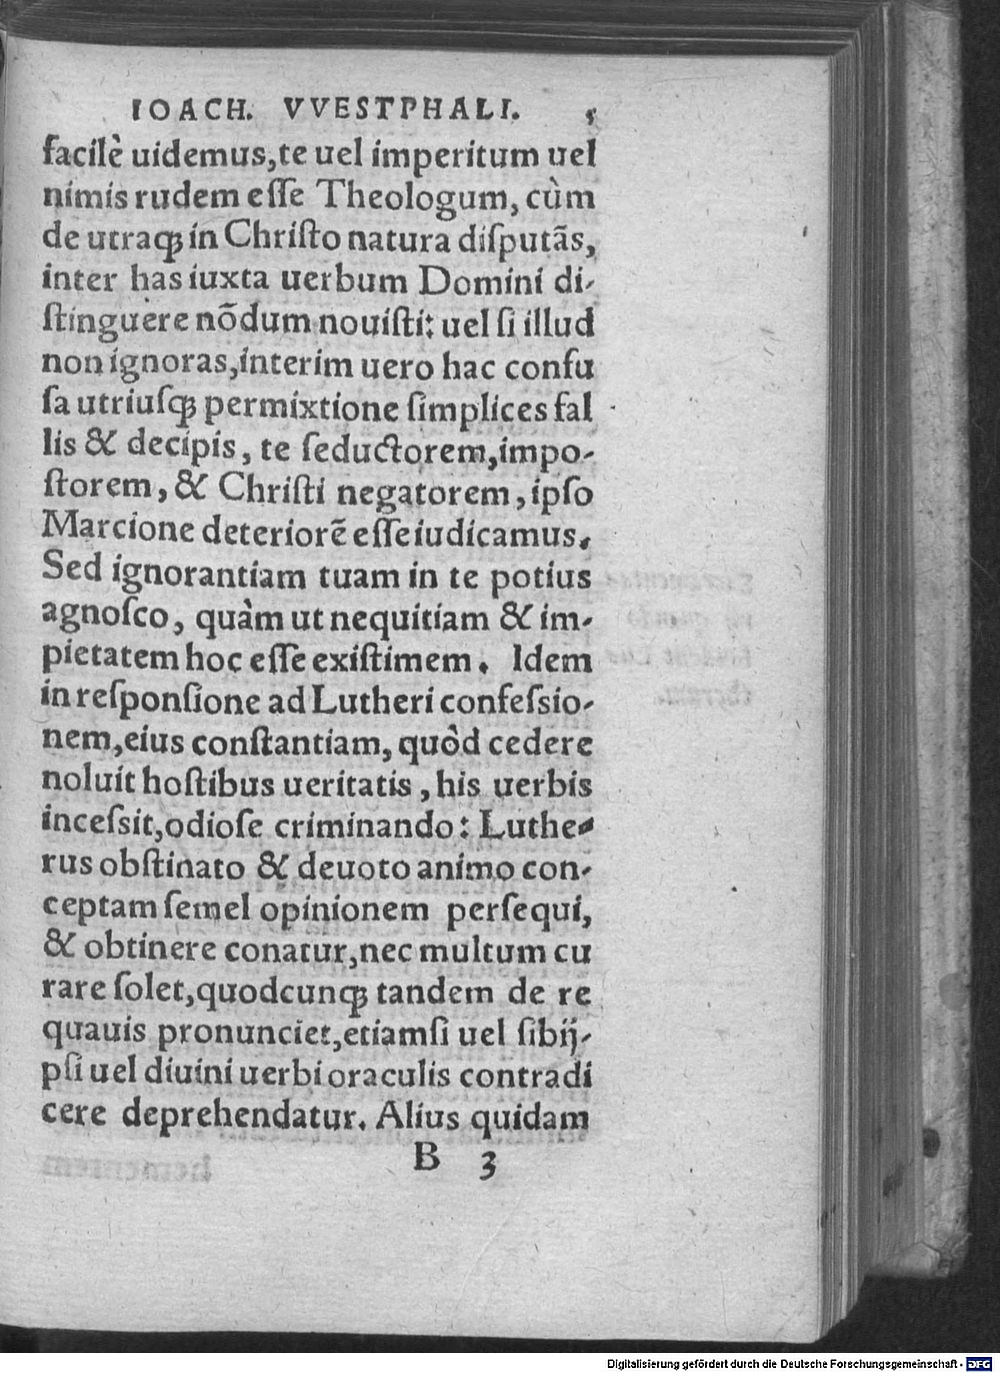 IOACH. VVESTPHALI. 5
facilè uidemus,te uel imperitum uel
nimis rudem eſſe Theologum, cùm
de utraqꝫ in Chriſto natura diſputãs,
inter has iuxta uerbum Domini di-
ſtinguere nõdum nouiſti: uel ſi illud
non ignoras,interim uero hac confu
ſa utriuſqꝫ permixtione ſimplices fal
lis & decipis, te ſeductorem,impo-
ſtorem, & Chriſti negatorem, ipſo
Marcione deteriorẽ eſſe iudicamus.
Sed ignorantiam tuam in te potius
agnoſco, quàm ut nequitiam & im-
pietatem hoc eſſe exiſtimem. Idem
in reſponſione ad Lutheri confeſsio-
nem,eius conſtantiam, quòd cedere
noluit hoſtibus ueritatis, his uerbis
inceſsit,odioſe criminando: Luthe-
rus obſtinato & deuoto animo con-
ceptam ſemel opinionem perſequi,
& obtinere conatur,nec multum cu
rare ſolet,quodcunqꝫ tandem de re
quauis pronunciet,etiamſi uel ſibĳ-
pſi uel diuini uerbi oraculis contradi
cere deprehendatur. Alius quidam
B 3
Digitalisierung gefördert durch die Deutsche Forschungsgemeinschaft - DFG